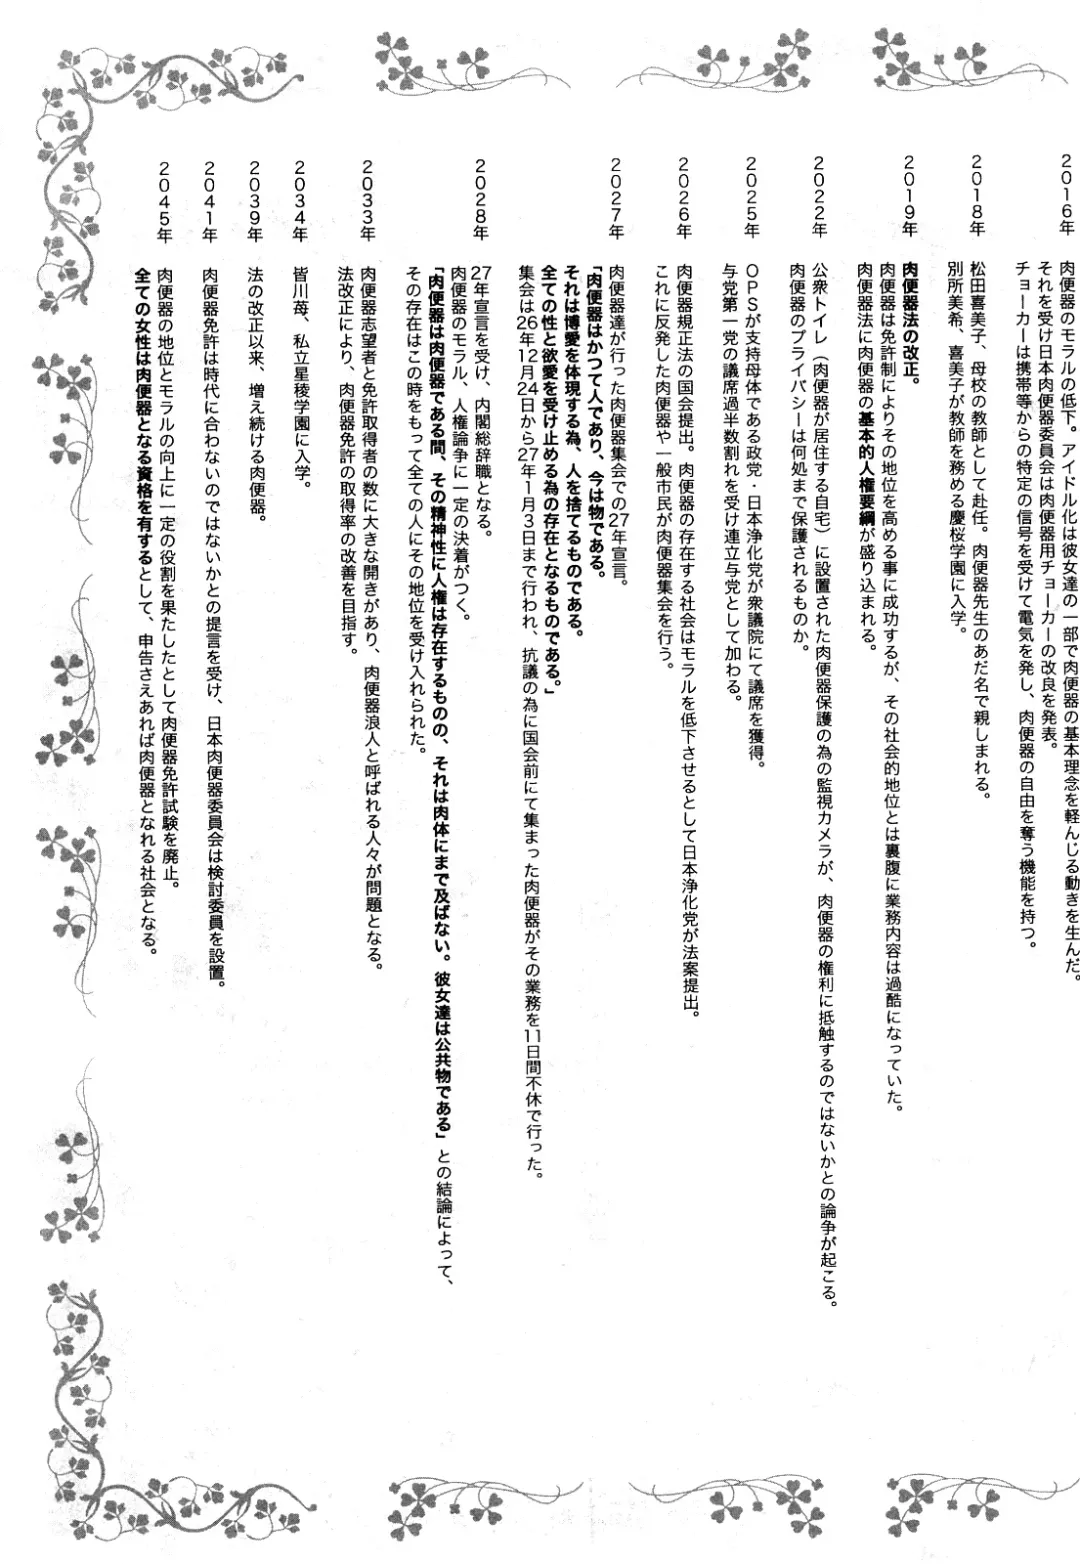 2016年
肉便器のモラルの低下。アイドル化は彼女達の一部で肉便器の基本理念を軽んじる動きを生んだ。
それを受け日本肉便器委員会は肉便器用チョーカーの改良を発表。
チョーカーは携帯等からの特定の信号を受けて電気を発し、肉便器の自由を奪う機能を持つ。
2018年
松田喜美子、母校の教師として赴任。肉便器先生のあだ名で親しまれる。
別所美希、喜美子が教師を務める慶桜学園に入学。
2019年
肉便器法の改正。
肉便器は免許制によりその地位を高める事に成功するが、その社会的地位とは裏腹に業務内容は過酷になっていた。
肉便器法に肉便器の基本的人権要綱が盛り込まれる。
2022年
公衆トイレ（肉便器が居住する自宅）に設置された肉便器保護の為の監視カメラが、肉便器の権利に抵触するのではないかとの論争が起こる。
肉便器のプライバシーは何処まで保護されるものか。
2025年
OPSが支持母体である政党・日本浄化党が衆議院にて議席を獲得。
与党第一党の議席過半数割れを受け連立与党として加わる。
2026年
肉便器規正法の国会提出。肉便器の存在する社会はモラルを低下させるとして日本浄化党が法案提出。
これに反発した肉便器や一般市民が肉便器集会を行う。
2027年
肉便器達が行った肉便器集会での27年宣言。
「肉便器はかつて人であり、今は物である。
それは博愛を体現する為、人を捨てるものである。
全ての性と欲愛を受け止める為の存在となるものである。」
集会は26年12月24日から27年1月3日まで行われ、抗議の為に国会前にて集まった肉便器がその業務を11日間不休で行った。
2028年
27年宣言を受け、内閣総辞職となる。
肉便器のモラル、人権論争に一定の決着がつく。
「肉便器は肉便器である間、その精神性に人権は存在するものの、それは肉体にまで及ばない。彼女達は公共物である」との結論によって、
その存在はこの時をもって全ての人にその地位を受け入れられた。
2033年
肉便器志望者と免許取得者の数に大きな開きがあり、肉便器浪人と呼ばれる人々が問題となる。
法改正により、肉便器免許の取得率の改善を目指す。
2034年
皆川苺、私立星稜学園に入学。
2039年
法の改正以来、増え続ける肉便器。
2041年
肉便器免許は時代に合わないのではないかとの提言を受け、日本肉便器委員会は検討委員を設置。
2045年
肉便器の地位とモラルの向上に一定の役割を果たしたとして肉便器免許試験を廃止。
全ての女性は肉便器となる資格を有するとして、申告さえあれば肉便器となれる社会となる。